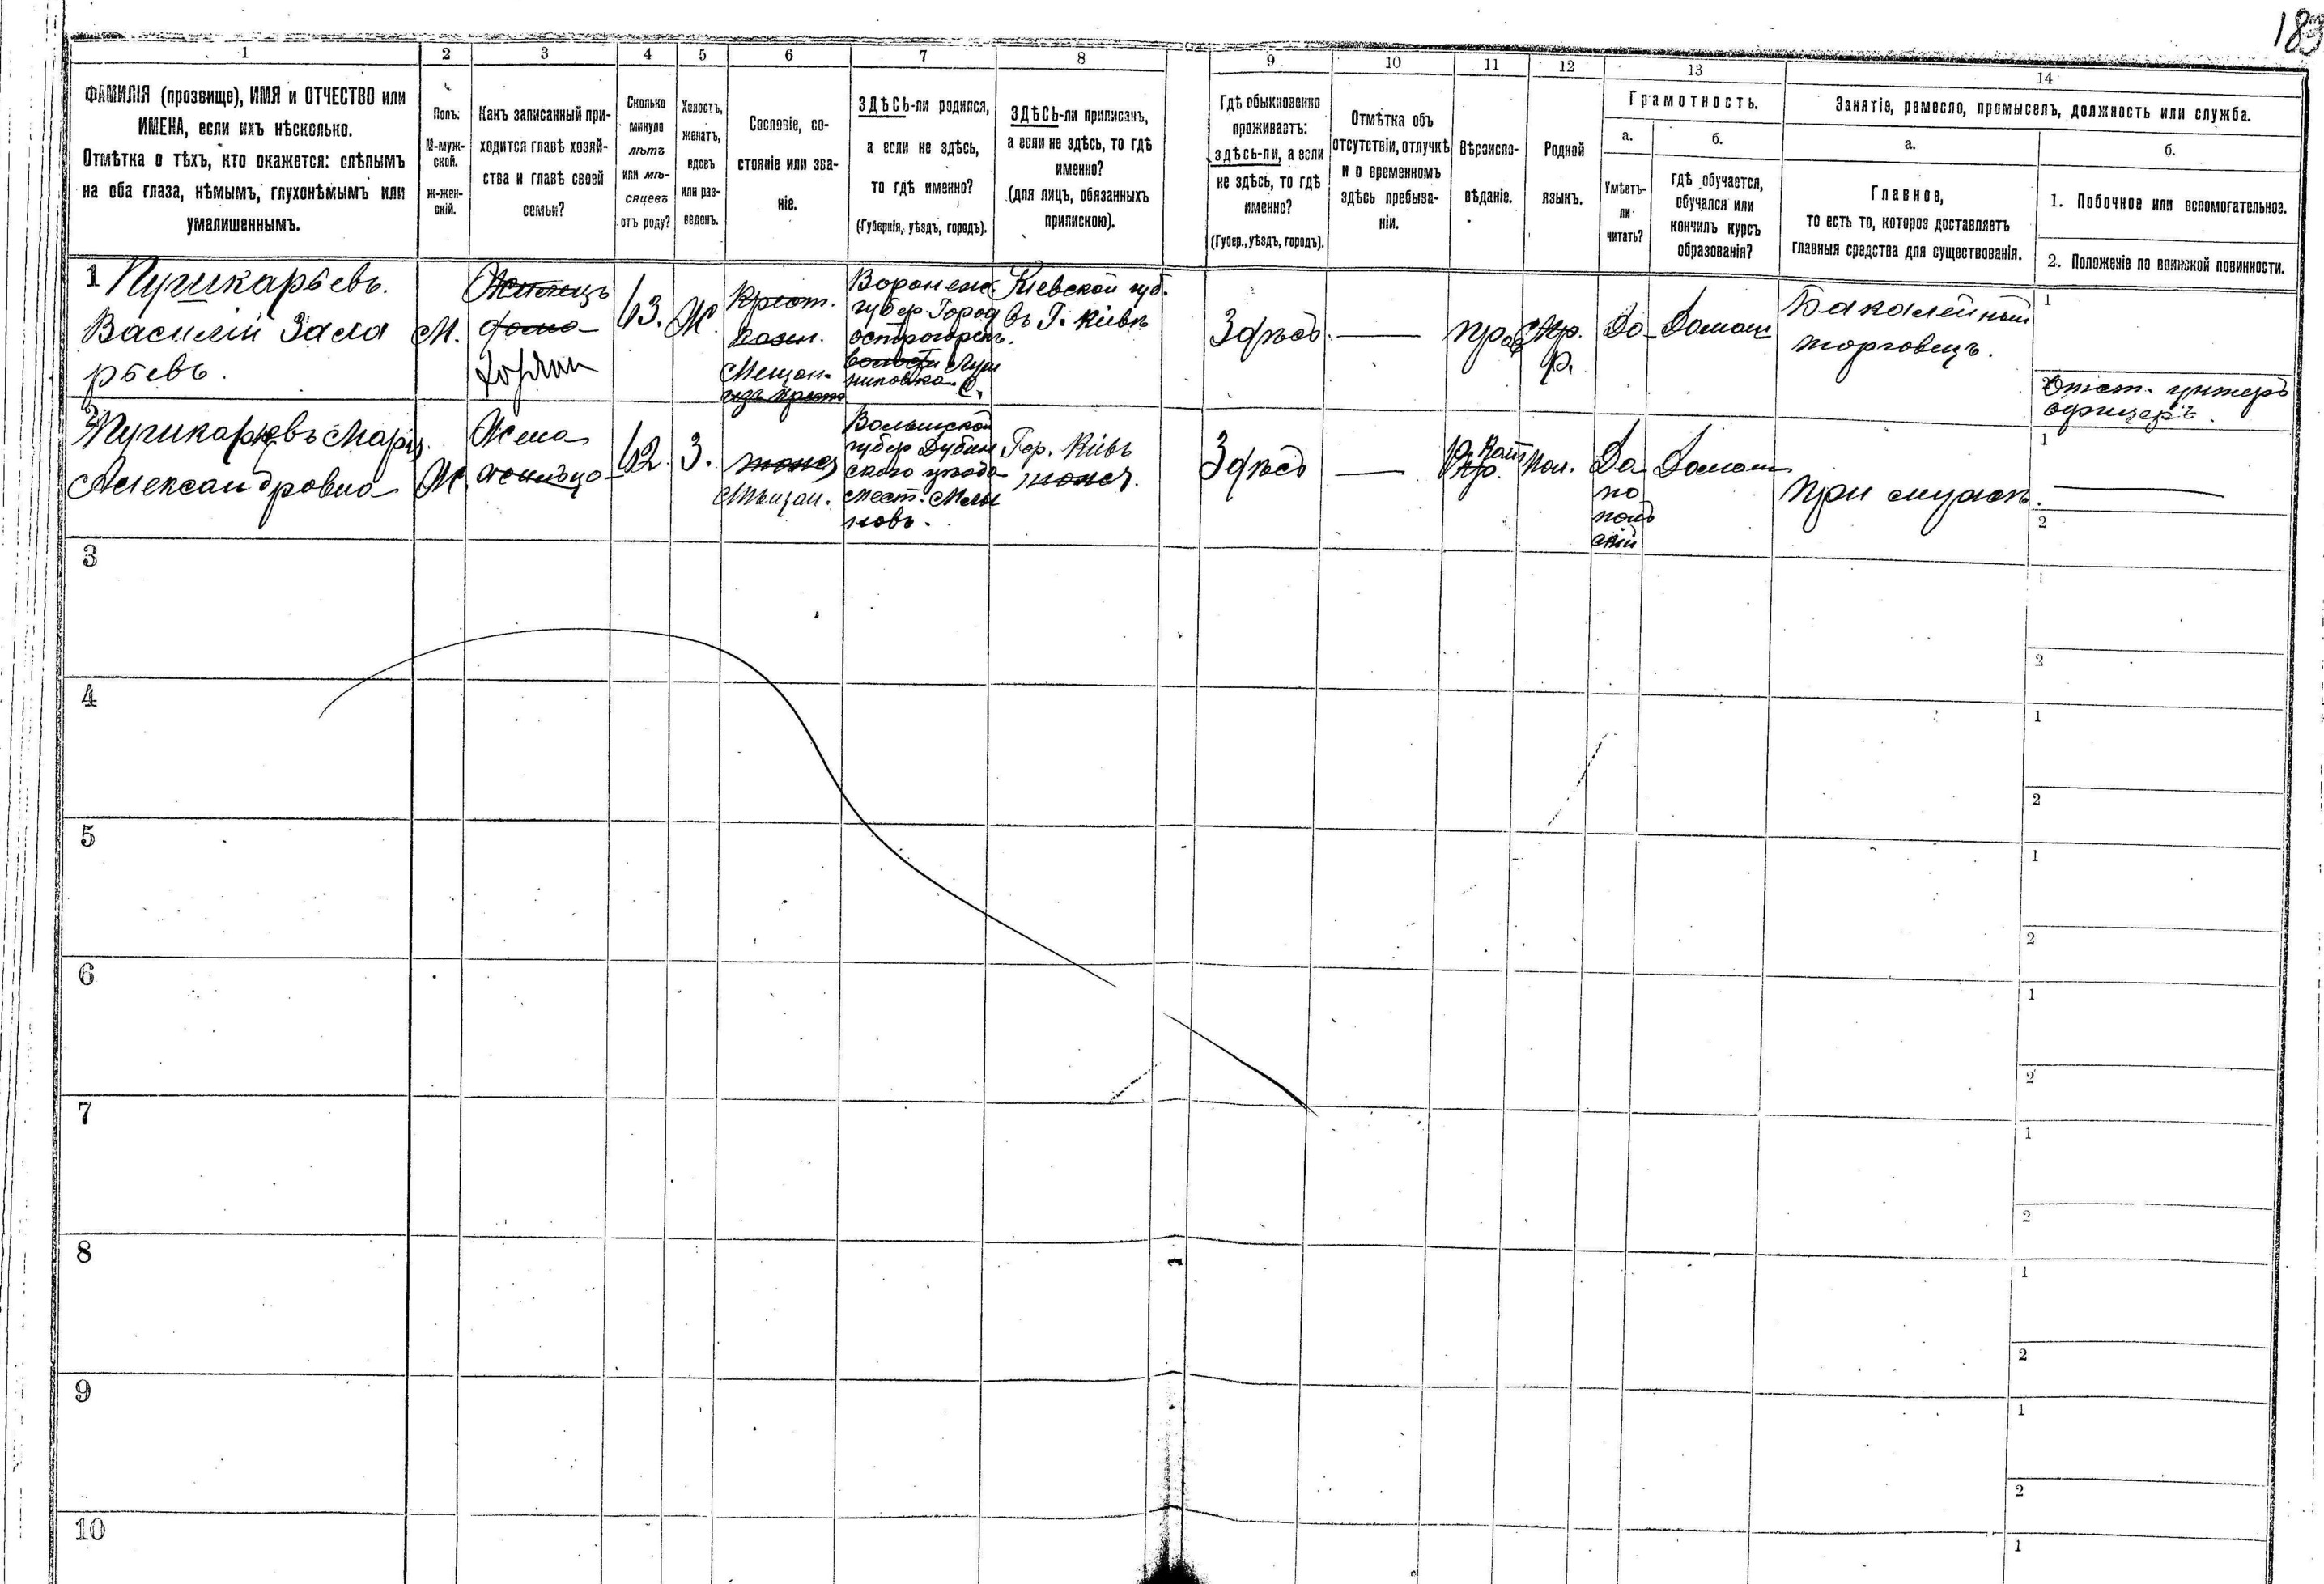 183
1 2 3 4 5 6 7 8 9 10 11 12 13 14
ФАМИЛІЯ (прозвище), ИМЯ и ОТЧЕСТВО или
ИМЕНА, если ихъ нѣсколько.
Отмѣтка о тѣхъ, кто окажется: слѣпымъ
на оба глаза, нѣмымъ, глухонѣмымъ или
умалишеннымъ.
Полъ.
М-муж-
ской.
Ж-жен-
скій.
Какъ записанный при-
ходится главѣ хозяй-
ства и главѣ своей
семьи?
Сколько
минуло
лѣтъ
или мѣ-
сяцевъ
отъ роду?
Холостъ,
женатъ,
вдовъ
или раз-
веденъ.
Сословіе, со-
стояніе или зва-
ніе.
ЗДѢСЬ-ли родился,
а если не здѣсь,
то гдѣ именно?
(Губернія, уѣздъ, городъ).
ЗДѢСЬ-ли приписанъ,
а если не здѣсь, то гдѣ
именно?
(для лицъ, обязанныхъ
припискою).
Гдѣ обыкновенно
проживаетъ:
здѣсь-ли, а если
не здѣсь, то гдѣ
именно?
(Губер., уѣздъ, городъ).
Отмѣтка объ
отсутствіи, отлучкѣ
и о временномъ
здѣсь пребыва-
ніи.
Вѣроиспо-
вѣданіе.
Родной
языкъ.
Грамотность.
а.
Умѣетъ-
ли
читать?
б.
гдѣ обучается,
обучался или
кончилъ курсъ
образованія?
Занятіе, ремесло, промыселъ, должность или служба.
а.
Главное,
то есть то, которое доставляетъ
главныя средства для существованія.
б.
1. Побочное или вспомогательное.
2. Положеніе по воинской повинности.
1 Пушкарьевъ.
Василій Заха
рьевъ.
М.
Жилецъ
хозяин
63.
Ж.
Крест.
Мещан.
Воронежс
губер Город
острогорск.
Киевской губ.
въ Г. Кіевѣ
Здѣсь
—
прав
р.
Да
Домаш
Бакалейный
торговецъ.
1
2
Отст. унтеръ
офицеръ.
2
Пушкарьевъ Марія
Александровна
Ж.
Жена
жильца
62.
З.
тоже
Мѣщан.
Волынской
губер Дубен
ского уѣзда
мест. Млы
новъ.
Гор. Кіевъ
тоже.
Здѣсь
—
Р. Кат
Пол.
Да
по
поль
скій
Домаш
При мужѣ.
1
2
3
1
2
4
1
2
5
1
2
6
1
2
7
1
2
8
1
2
9
1
2
10
1